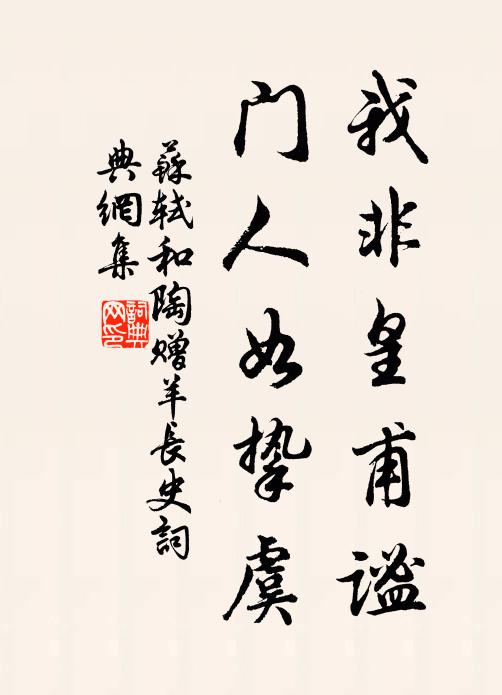 我非皇甫谧
门人如挚虞
蘇軾和陶赠羊長史詞
典網集
詞典
网印